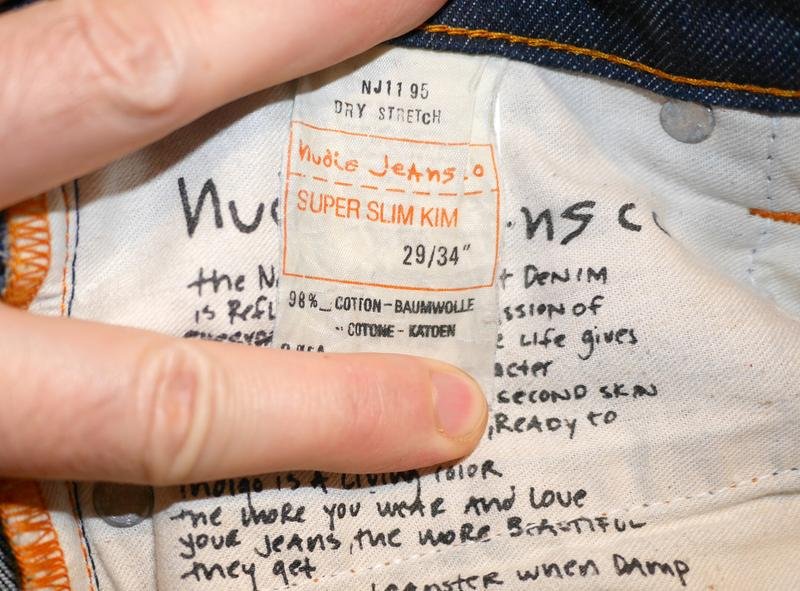 NJ1195
DRY STRETCH
nudie jeans.o
SUPER SLIM KIM
29/34"
98% COTTON-BAUMWOLLE
COTONE - KATOEN
ns c
the N DENIM
is Refl ssion of
Life gives
acter
second skin
, Ready to
Indigo is a living color
the more you wear and love
your jeans, the more beautiful
they get
when damp